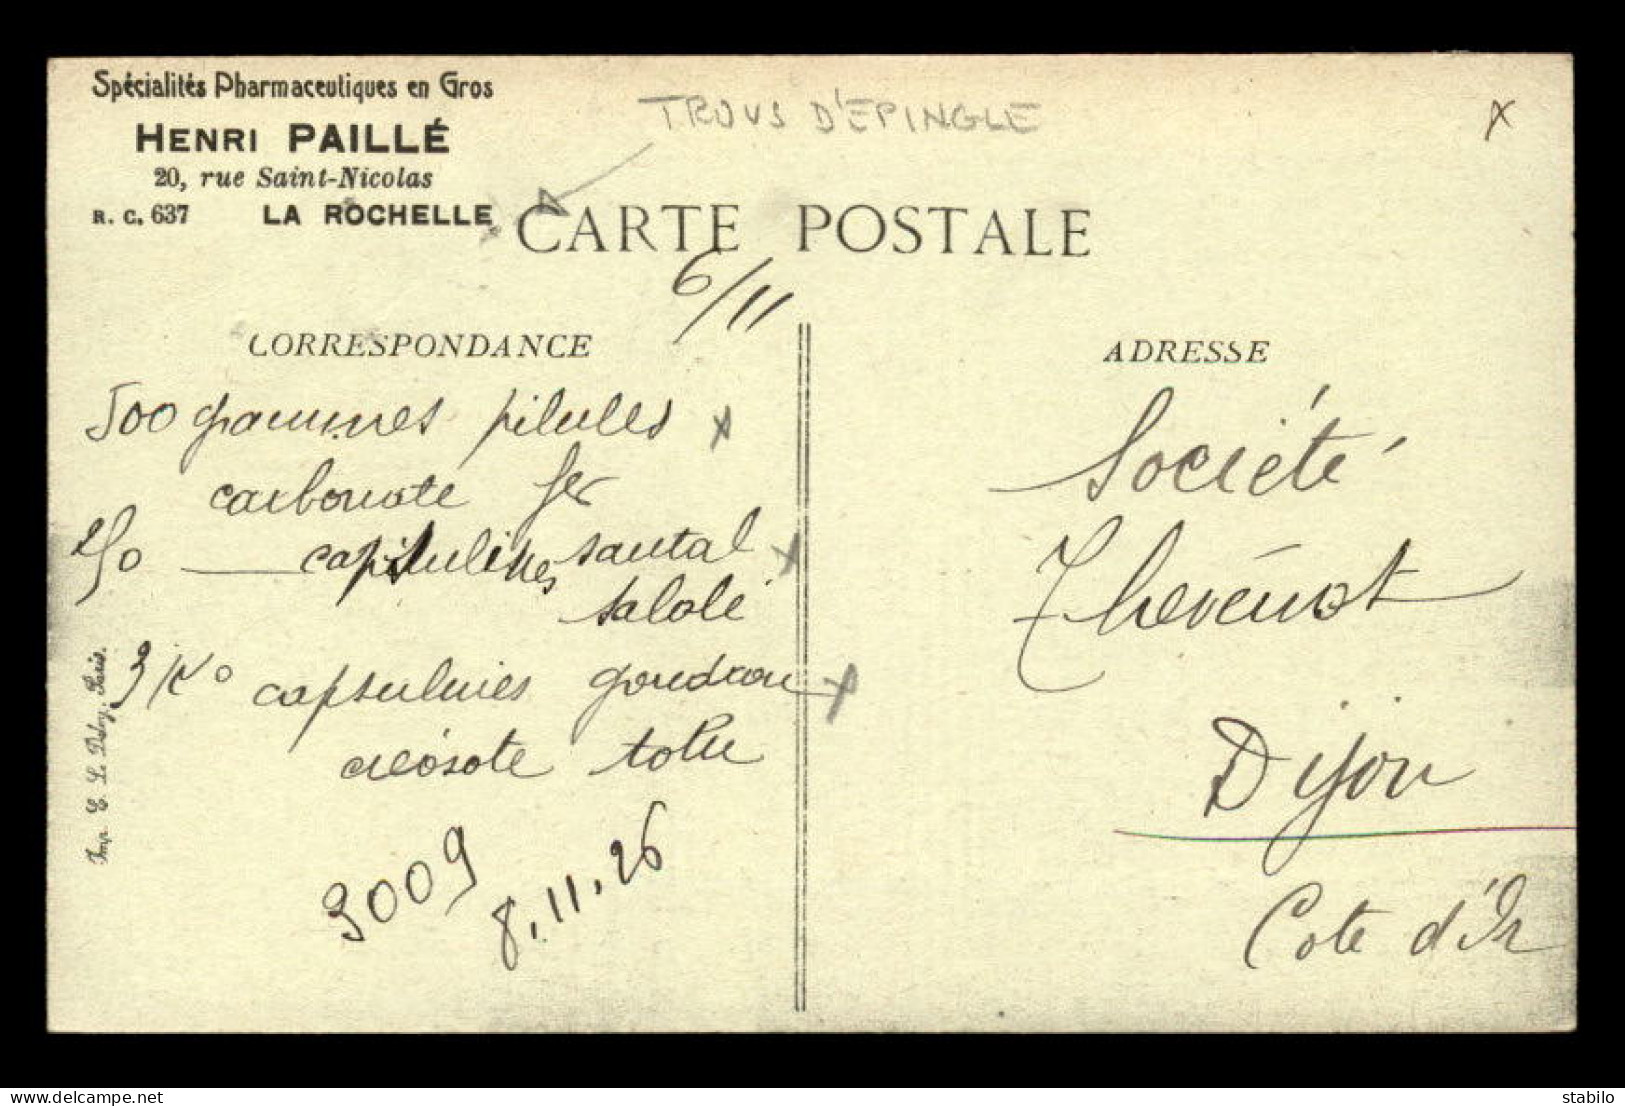 Spécialités Pharmaceutiques en Gros
HENRI PAILLÉ
20, rue Saint-Nicolas
R. C. 637 LA ROCHELLE
TROUS D'EPINGLE
x
CARTE POSTALE
6/11
CORRESPONDANCE
500 grammes pilules x
carbonate fer
250 — capsulines santal x
salolé
3 Ko capsulines goudron x
créosote tolu
3009
8.11.26
Imp. E. L. Deley, Paris.
ADRESSE
Société
Thevenot
Dijon
Cote d'Or
delcampe.net
stabilo